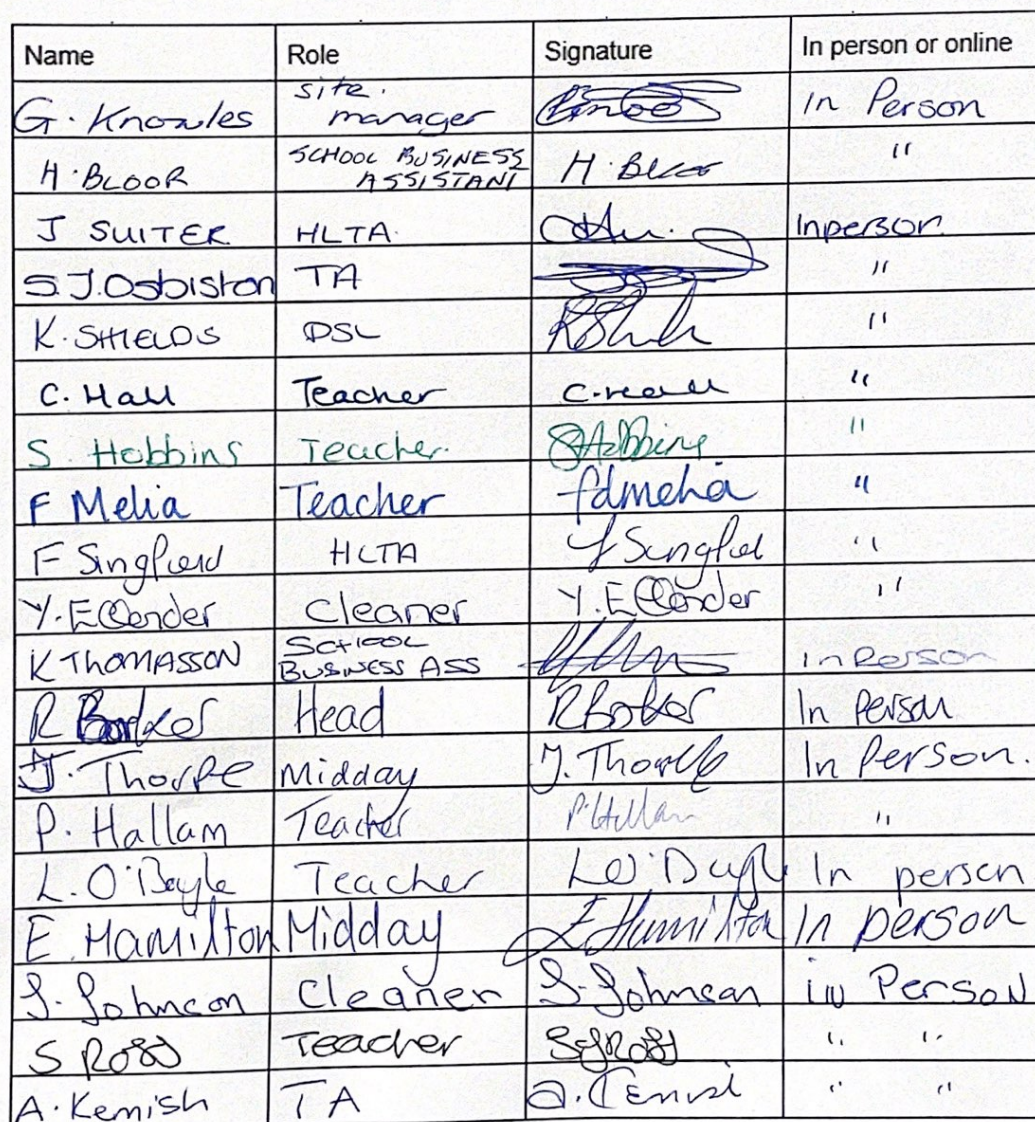 Name Role Signature In person or online
G. Knowles site manager In Person
H. BLOOR SCHOOL BUSINESS ASSISTANT H. Bloor "
J SUITER HLTA. Inperson.
S.J.Osbiston TA "
K. SHIELDS DSL "
C. Hall Teacher C. Hall "
S. Hobbins Teacher. SHobbins "
F Melia Teacher fdmelia "
F Singfield HLTA f Singfield "
Y. Ellender Cleaner Y. Ellender "
K THOMASSON SCHOOL BUSINESS ASS in Person
R Barker Head R Barker In Person
J. Thorpe Midday J. Thorpe In Person.
P. Hallam Teacher P. Hallam "
L. O'Boyle Teacher L O'Boyle In person
E. Hamilton Midday E Hamilton In person
S. Johnson Cleaner S. Johnson in Person
S Ross Teacher SJRoss " "
A. Kemish TA " "